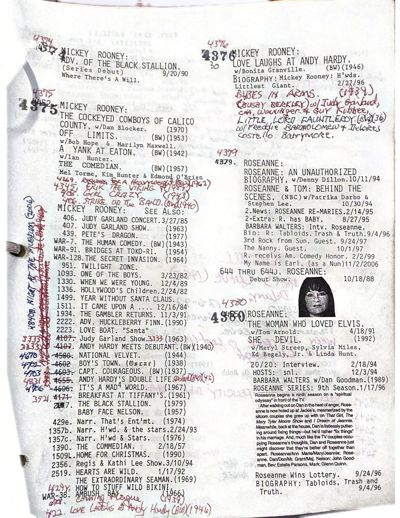 4374
374. MICKEY ROONEY:
ADV. OF THE BLACK STALLION.
(Series Debut) 9/20/90
Where There's A Will.
4375
4375 MICKEY ROONEY:
THE COCKEYED COWBOYS OF CALICO
COUNTY. w/Dan Blocker. (1970)
OFF LIMITS. (BW)(1953)
w/Bob Hope & Marilyn Maxwell.
A YANK AT EATON. (BW)(1942)
w/Ian Hunter.
THE COMEDIAN. (BW)(1957)
Mel Torme, Kim Hunter & Edmond O'Brien
ERIK THE VIKING
GIRL CRAZY (1943)
STRIKE UP THE BAND (BW)(1940)
MICKEY ROONEY: SEE Also:
406. JUDY GARLAND CONCERT. 3/27/85
407. JUDY GARLAND SHOW. (1963)
439. PETE'S DRAGON. (1977)
WAR-7. THE HUMAN COMEDY. (BW)(1943)
WAR-91. BRIDGES AT TOKO-RI. (1954)
WAR-128. THE SECRET INVASION. (1964)
951. TWILIGHT ZONE.
1093. ONE OF THE BOYS. 3/23/82
1330. WHEN WE WERE YOUNG. 12/4/89
1336. HOLLYWOOD'S Children. 2/24/82
1499. YEAR WITHOUT SANTA CLAUS.
1511. IT CAME UPON A .... 12/16/84
1934. THE GAMBLER RETURNS. 11/3/91
2222. ADV. HUCKLEBERRY FINN. (1990)
2223. LOVE BOAT. "Santa"
4107. Judy Garland Show. 3333 (1963)
4107. ANDY HARDY MEETS DEBUTANTE. (BW)(1940)
4588. NATIONAL VELVET. (1944)
4602. BOY'S TOWN. (1938)
4603. CAPT. COURAGEOUS. (BW)(1937)
4655. ANDY HARDY'S DOUBLE LIFE (BW)(42)
4606. IT'S A MAD WORLD. (1963)
4171. BREAKFAST AT TIFFANY'S. (1961)
THE BLACK STALLION. (1979)
BABY FACE NELSON. (1957)
429e. Narr. That's Ent'mt. (1974)
1357b. Narr. H'wd. & the stars. 2/24/93
1357c. Narr. H'wd & Stars. (1976)
1390. THE COMEDIAN. 2/18/57
1509. HOME FOR CHRISTMAS. (1990)
2356. Regis & Kathi Lee Show. 3/10/94
2519. HEARTS ARE WILD. 1/17/92
THE EXTRAORDINARY SEAMAN. (1969)
HOW TO STUFF WILD BIKINI.
WAR-38. AMBUSH BAY. (1966)
422. LOVE LAUGHS @ Andy Hardy (BW)(1946)
4376
4376 MICKEY ROONEY:
LOVE LAUGHS AT ANDY HARDY.
w/Bonita Granville. (BW)(1946)
BIOGRAPHY: Mickey Rooney: H'wds.
Littlest Giant. 2/22/96
BABES IN ARMS. (1939)
(BUSBY BERKLEY) w/ Judy Garland,
LITTLE LORD FAUNTLEROY (BW)(36)
w/ FREDDIE BARTHOLOMEW & Dolores
Costello Barrymore.
4379
4379. ROSEANNE:
ROSEANNE: AN UNAUTHORIZED
BIOGRAPHY. w/Denny Dillon. 10/11/94
ROSEANNE & TOM: BEHIND THE
SCENES. (NBC) w/Patrika Darbo &
Stephen Lee. 10/30/94
2.News: ROSEANNE RE-MARIES. 2/14/95
2-Extra: R. has BABY. 8/27/95
BARBARA WALTERS: Intv. Roseanne.
Bio: R: Tabloids. Trash & Truth. 9/4/96
3rd Rock from Sun. Guest. 9/24/97
The Nanny. Guest. 10/1/97
R. receivs Am. Comedy Honor. 2/2/99
My Name is Earl. (as a Nun) 11/2/2006
644 THRU 644J. ROSEANNE:
Debut Show. 10/18/88
4380
4380 ROSEANNE:
THE WOMAN WHO LOVED ELVIS.
w/Tom Arnold. 4/18/91
SHE DEVIL. (1992)
w/Meryl Streep, Sylvia Miles,
Ed Begely, Jr. & Linda Hunt.
20/20: Interview. 2/18/94
HOSTS: snl. 12/3/94
BARBARA WALTERS w/Dan Goodman. (1989)
ROSEANNE SERIES: 9th Season. 1/17/96
Roseanne begins a ninth season on a "spiritual
odyssey" in front of the TV.
Roseanne Wins Lottery. 9/24/96
BIOGRAPHY: Tabloids, Trash and
Truth. 9/4/96